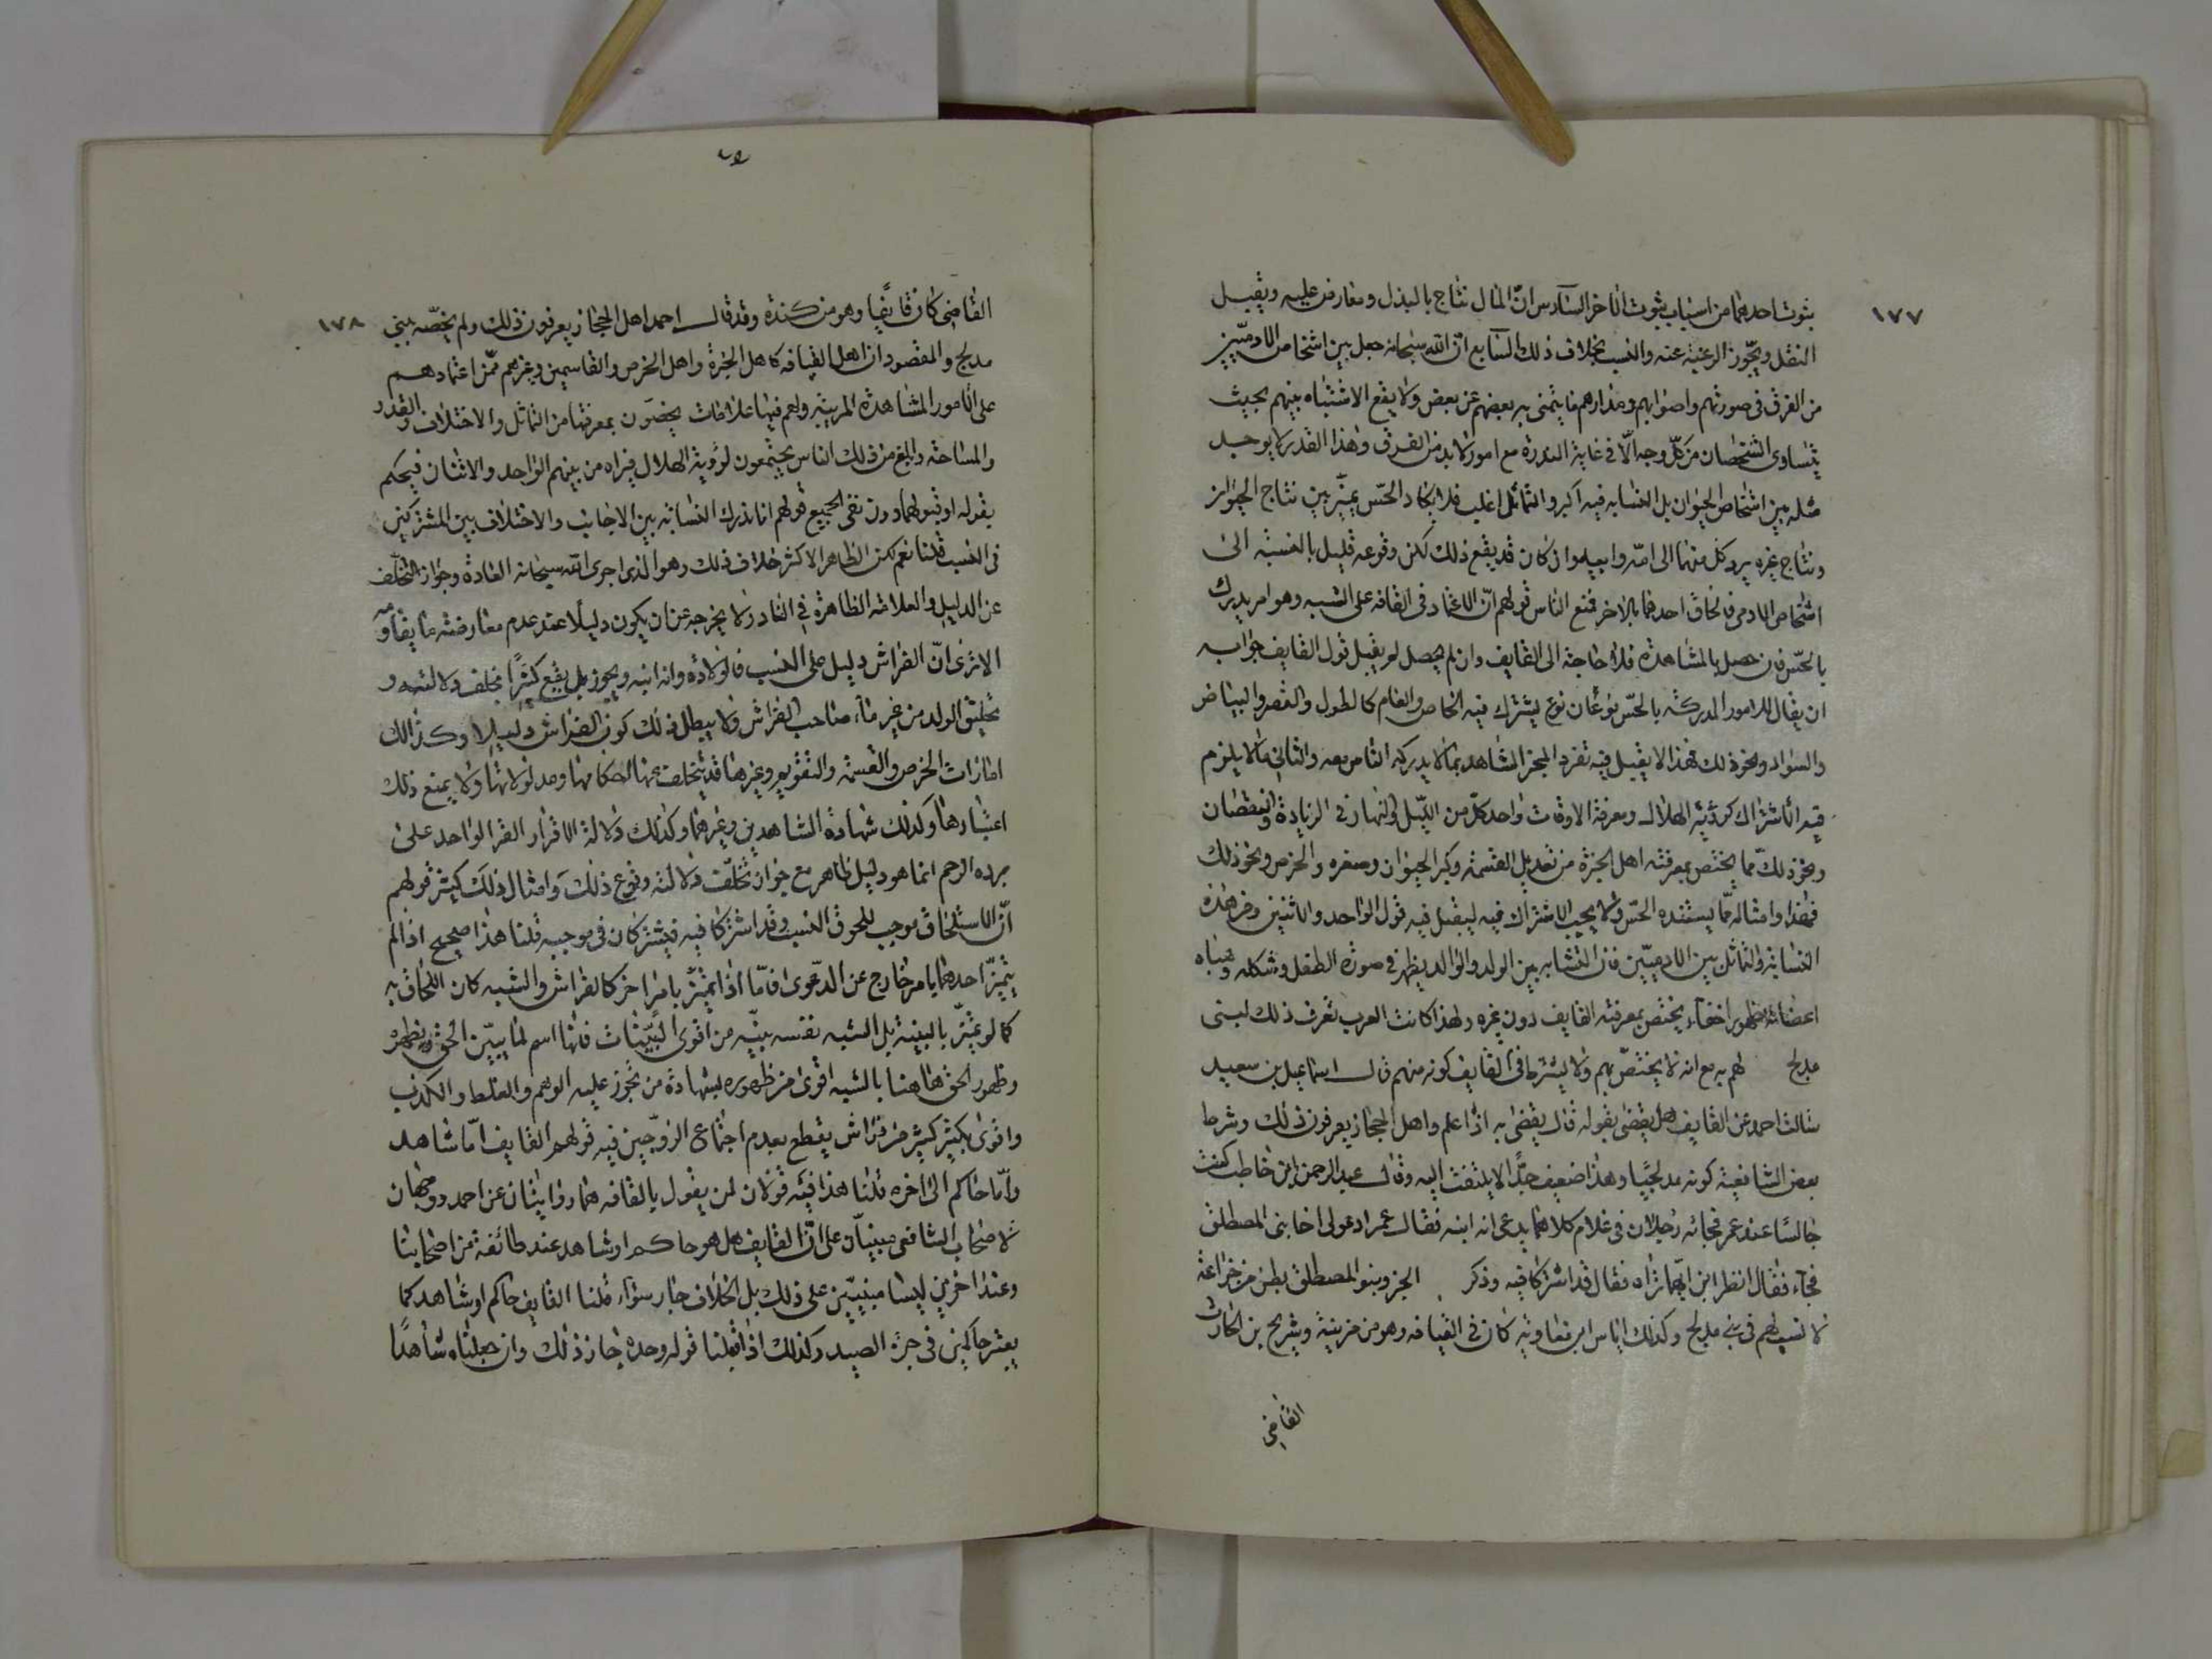 ١٧٧
ثبوت احدهما من اسباب ثبوت الاخر السادس انّ المال نتاج بالبذل ومعارض عليه ويقبل
النقل ويجوز الرغبة عنه والنسب بخلاف ذلك السابع ان الله سبحانه جعل بين اشخاص الادميين
من الفرق في صورتهم واصواتهم ومدارهم ما يتميز به بعضهم عن بعض ولا يقع الاشتباه بينهم بحيث
يتساوى الشخصان من كل وجه الّا في غاية الندرة مع امور لا بد من الفرق وهذا القدر لا يوجد
مثله بين اشخاص الحيوان بل التشابه فيه اكبر والتماثل اغلب فلا يكاد الحسّ يميّز بين نتاج الحيوان
ونتاج غيره برد كل منهما الى امّه وابيه وان كان قد يقع ذلك لكن وقوعه قليل بالنسبة الى
اشخاص الادمي فالحاق احدهما بالاخر ممتنع الناس قولهم انّ الاعتماد في القافه على الشبه وهو امر يدرك
بالحسّ فان حصل بالمشاهدة فلا حاجة الى القايف وان لم يحصل لم يقبل قول القايف جوابه
ان يقال الامور المدركة بالحسّ نوعان نوع يشترك فيه الخاص والعام كالطول والقصر والبياض
والسواد ونحو ذلك فهذا لا يقبل فيه تفرد المخبر المشاهد بما لا يدركه الناس معه والثاني ما لا يلزم
فيه الاشتراك كرؤية الهلال ومعرفة الاوقات واحد كل من الليل والنهار في الزيادة والنقصان
ونحو ذلك مما يختص بمعرفته اهل الخبرة من تعديل القسمة وكبر الحيوان وصغره والخرص ونحو ذلك
فهذا وامثاله مما يستنده الحسّ ولا يجب الاشتراك فيه ليقبل فيه قول الواحد والاثنين ومن هذه
التشابه والتماثل بين الادميين فان التشابه بين الولد والوالد يظهر في صورة الطفل وشكله وهيأه
اعضائه ظهورا خفاء يختص بمعرفته القايف دون غيره ولهذا كانت العرب تعرف ذلك لبني
مدلج لهم به مع انه لا يختص بهم ولا يشترط في القايف كونه منهم قال اسماعيل بن سعيد
سالت احمد عن القايف هل يقضى بقوله قال يقضى به اذا علم واهل الحجاز يعرفون ذلك وشرط
بعض الشافعية كونه مدلجيا وهذا ضعيف جدّا لا يلتفت اليه وقال عبد الرحمن ابن حاطب كنت
جالسا عند عمر فجائه رجلان في غلام كلاهما يدعى انه ابنه فقال عمر ادعو لى اخا بنى المصطلق
فجاء فقال انظر ابن ايهما تراه فقال قد اشتركا فيه وذكر الخبر وبنو المصطلق بطن من خزاعة
لا نسب لهم في بني مدلج وكذلك اياس ابن معاوية كان في القيافه وهو من مزينة وشريح بن الحارث
القاضي
١٧٨
القاضي كان قايفيا وهو من كندة وقد قال احمد اهل الحجاز يعرفون ذلك ولم يخصّه ببني
مدلج والمقصود ان اهل القيافه كاهل الخبرة واهل الخرص والقاسمين وغيرهم ممّن اعتمادهم
على الامور المشاهدة المرئية ولهم فيها علامات يخصّون بمعرفتها من التماثل والاختلاف والقدر
والمساحة وابلغ من ذلك الناس يجتمعون لرؤية الهلال فيراه من بينهم الواحد والاثنان فيحكم
بقوله او قولهما دون نفى الجميع قولهم انا ندرك التشابه بين الاجانب والاختلاف بين المشتركين
في النسب قلنا نعم لكن الظاهر الاكثر خلاف ذلك وهو الذى اجرى الله سبحانه العادة وجواز التخلّف
عن الدليل والعلامة الظاهرة في النادر لا يخرجه عن ان يكون دليلا عند عدم معارضته ما يقاومه
الا ترى انّ الفراش دليل على النسب فالولادة وانه ابنه ويجوز بل يقع كثيرًا تخلف دلالته و
تخليق الولد من غير ماء صاحب الفراش ولا يبطل ذلك كون الفراش دليلا وكذالك
امارات الخرص والقسمة والتقويم وغيرها قد يتخلف عنها احكامها ومدلولاتها ولا يمنع ذلك
اعتبارها وكذلك شهادة الشاهدين وغيرهما وكذلك دلالة الاقرار القرء الواحد على
برده الرحم انما هو دليل ظاهر مع جواز تخلّف دلالته وقوع ذلك وامثال ذلك كثير قولهم
انّ الاستلحاق موجب للحوق النسب وقد اشتركا فيه فيشتركان في موجبه قلنا هذا صحيح اذا لم
يتميّز احدهما بامر خارج عن الدعوى فامّا اذا تميّز بامر اخر كالفراش والشبه كان اللحاق به
كما لو تميّز بالبينة بل الشبه نفسه بيّنه من اقوى البيّنات فانها اسم لما يبيّن الحق ويظهره
وظهور الحق هاهنا بالشبه اقوى من ظهوره بشهادة من يجوز عليه الوهم والغلط والكذب
واقوى بكثير كثير من فراش يقطع بعدم اجتماع الزوجين فيه قولهم القايف امّا شاهد
وامّا حاكم الى اخره قلنا هذا فيه قولان لمن يقول بالقافه هما روايتان عن احمد ووجهان
لاصحاب الشافعى مبنيان على انّ القايف هل هو حاكم او شاهد عند طائفة من اصحابنا
وعند اخرين ليسا مبنيين على ذلك بل الخلاف جار سواء قلنا القايف حاكم او شاهد كما
يعتبر حاكمين في جزء الصيد وكذلك اذا قبلنا قوله وحده جاز ذلك وان جعلناه شاهدًا